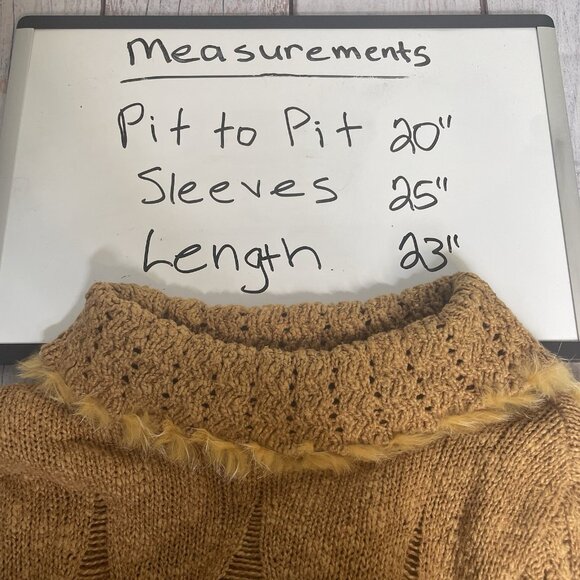 Measurements
Pit to Pit 20"
Sleeves 25"
Length 23"